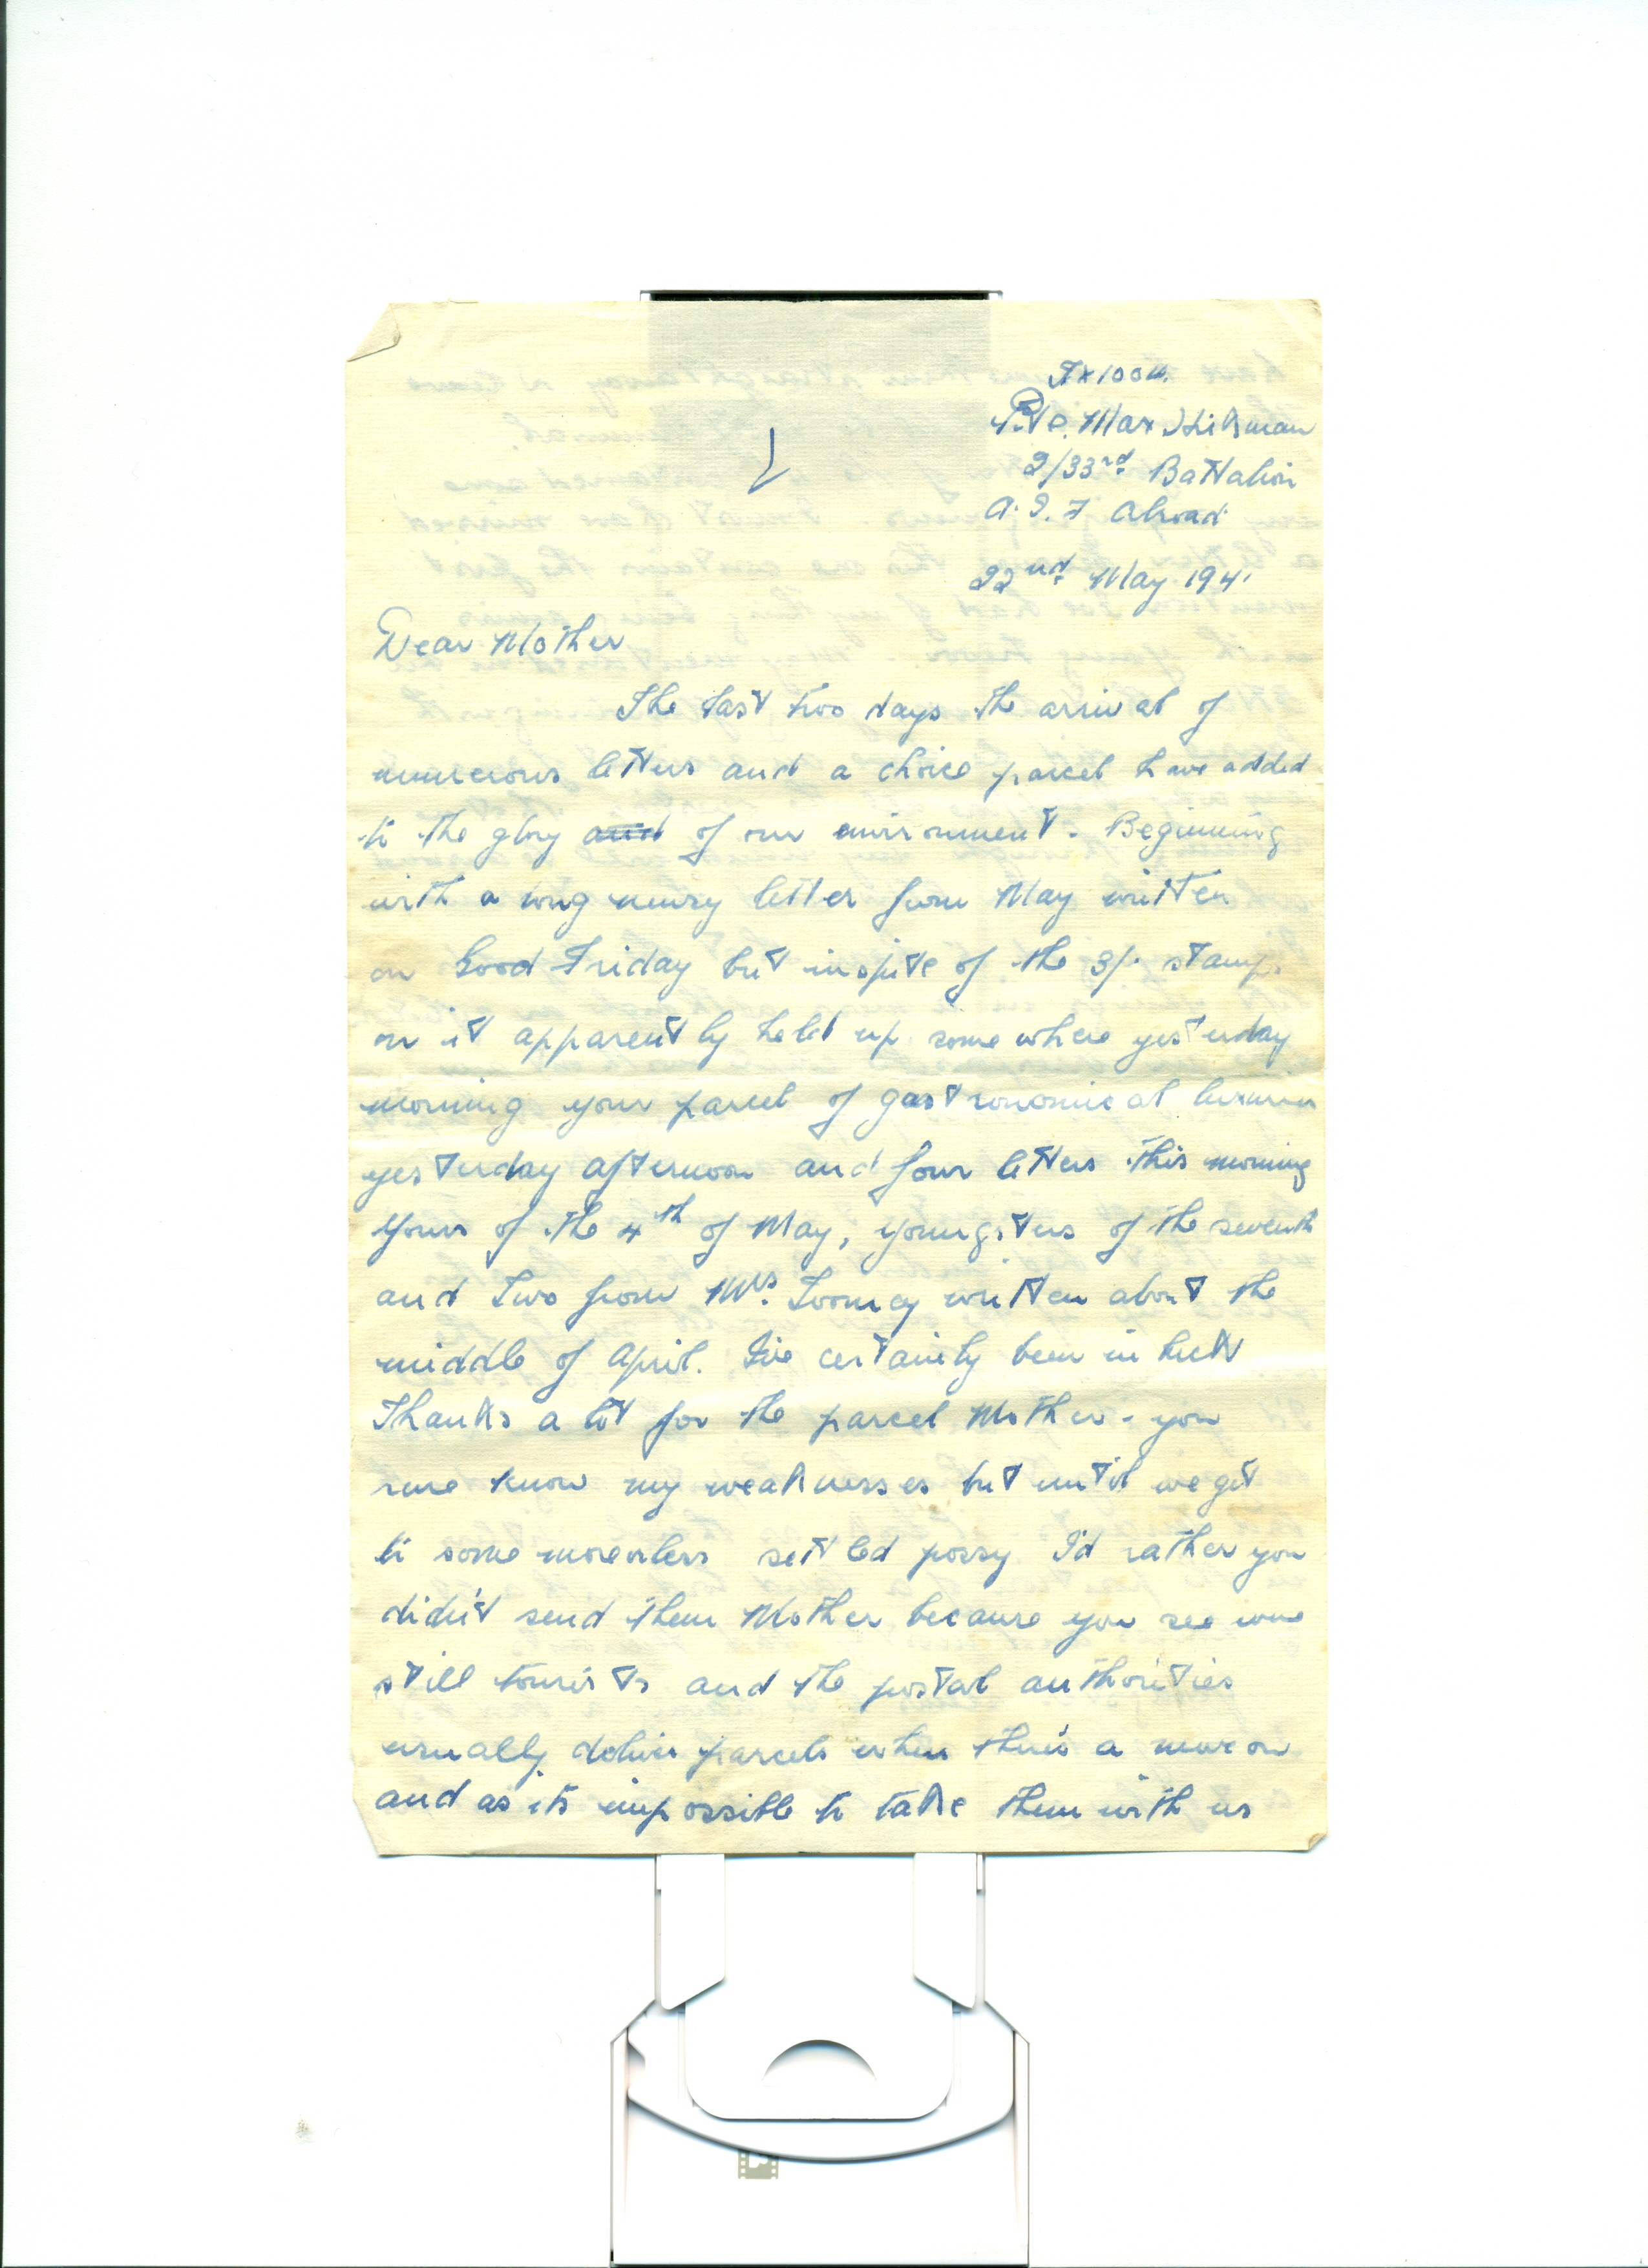 TX1004.
Pte. Max Hickman
2/33rd Battalion
A.I.F Abroad
22nd May 1941
Dear Mother
The last two days the arrival of
numerous letters and a choice parcel have added
to the glory and of our environment. Beginning
with a long newsy letter from May written
on Good Friday but inspite of the 3/- stamps
on it apparently held up somewhere yesterday
morning your parcel of gastronomical luxuries
yesterday afternoon and four letters this morning
Yours of the 4th of May, youngsters of the seventh
and two from Mrs. Toomey written about the
middle of April. I've certainly been in luck
Thanks a lot for the parcel Mother - you
sure know my weaknesses but until we get
to some moreorless settled possy I'd rather you
didn't send them Mother because you see we're
still tourists and the postal authorities
usually deliver parcels when there's a move on
and as it's impossible to take them with us